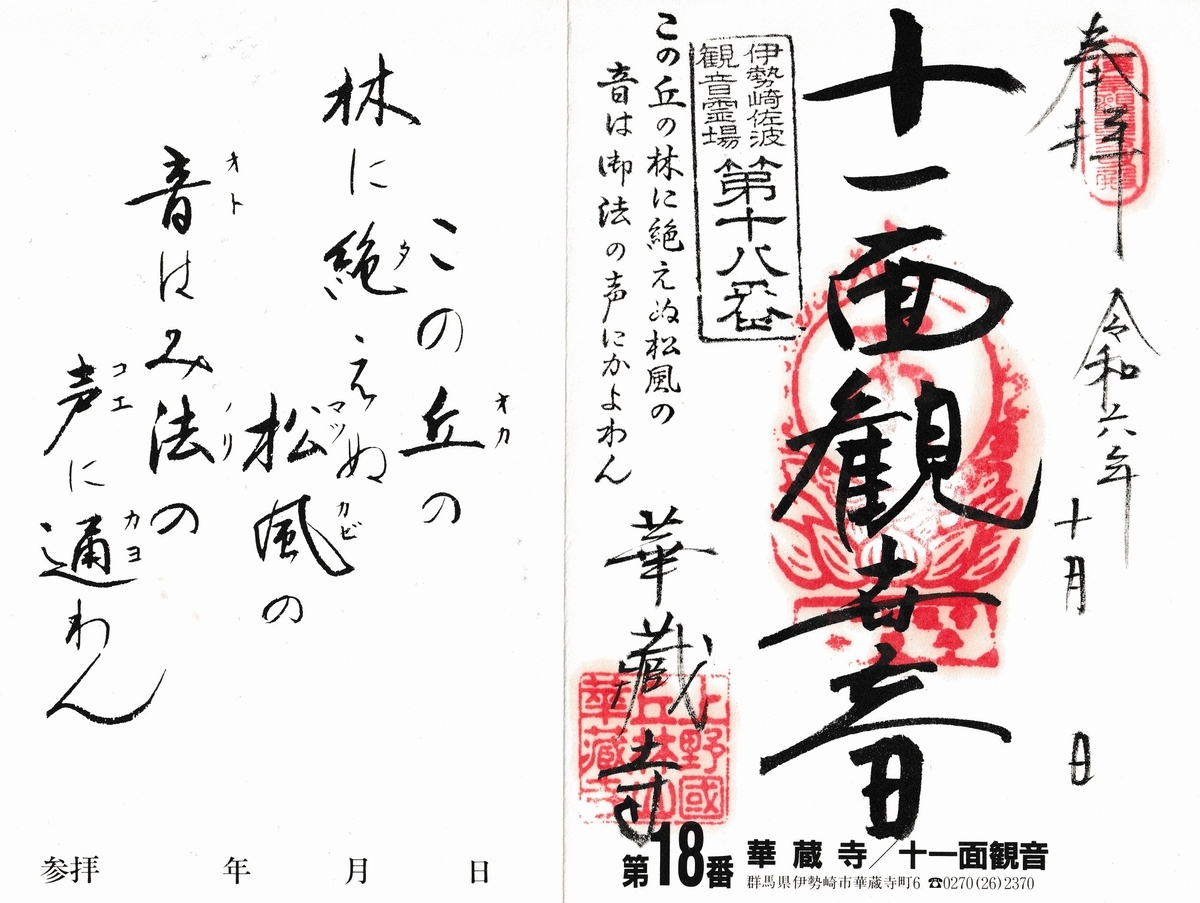 奉拝
令和六年
十月
日
十一面観世音
伊勢崎佐波
観音霊場
第十八番
この丘の林に絶えぬ松風の
音は御法の声にかよわん
華蔵寺
上野國
丘林山
華蔵寺
第18番 華蔵寺/十一面観音
群馬県伊勢崎市華蔵寺町6 ☎0270(26)2370
この丘の
オカ
林に絶えぬ
タ
松風の
マツ カビ
音はみ法の
オト ノリ
声に通わん
コエ カヨ
参拝 年 月 日